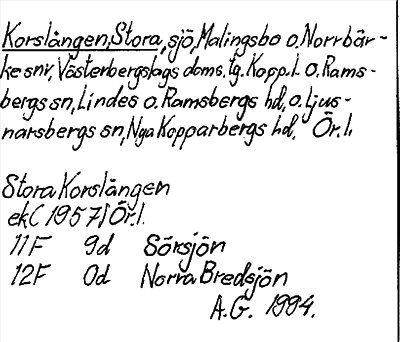 Korslången, Stora, sjö, Malingsbo o. Norrbär-
ke snr, Västerbergslags doms. tg. Kopp. l. o. Rams-
bergs sn, Lindes o. Ramsbergs hd, o. Ljus-
narsbergs sn, Nya Kopparbergs hd, Ör. l.
Stora Korslången
ek (1957) Ör. l.
11F 9d Sörsjön
12F 0d Norra Bredsjön
A.G. 1994.